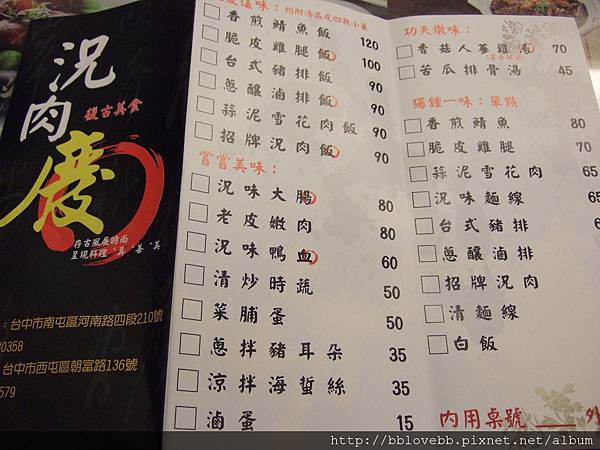 況肉慶
復古美食
存古風展時尚
呈現料理‘真’善‘美
：台中市南屯區河南路四段210號
0358
台中市西屯區朝富路136號
579
味：均附湯品及四款小菜
香煎鯖魚飯 120
脆皮雞腿飯 100
台式豬排飯 90
蔥釀滷排飯 90
蒜泥雪花肉飯 90
招牌況肉飯 90
嘗嘗美味：
況味大腸 80
老皮嫩肉 80
況味鴨血 60
清炒時蔬 50
菜脯蛋 50
蔥拌豬耳朵 35
涼拌海蜇絲 35
滷蛋 15
功夫燉味：
香菇人蔘雞湯 70
苦瓜排骨湯 45
獨鍾一味：單點
香煎鯖魚 80
脆皮雞腿 70
蒜泥雪花肉 65
況味麵線 65
台式豬排
蔥釀滷排
招牌況肉
清麵線
白飯
內用桌號
http://bblovebb.pixnet.net/album